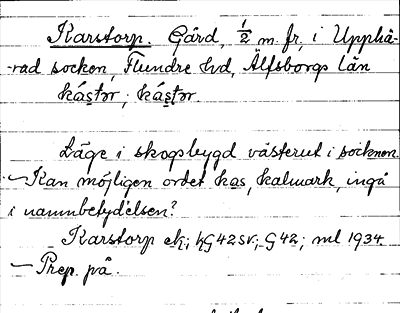 Karstorp. Gård, 1/2 m. fr, i Upphä-
-rad socken, Flundre hd, Älfsborgs län
kás̱tər; kás̱tər.
Läge i skogsbygd västerut i socknen.
— Kan möjligen ordet kas, kalmark, ingå
i namnbetydelsen?
Karstorp ek; hG42SV; G42; ml 1934
— Prep. på.